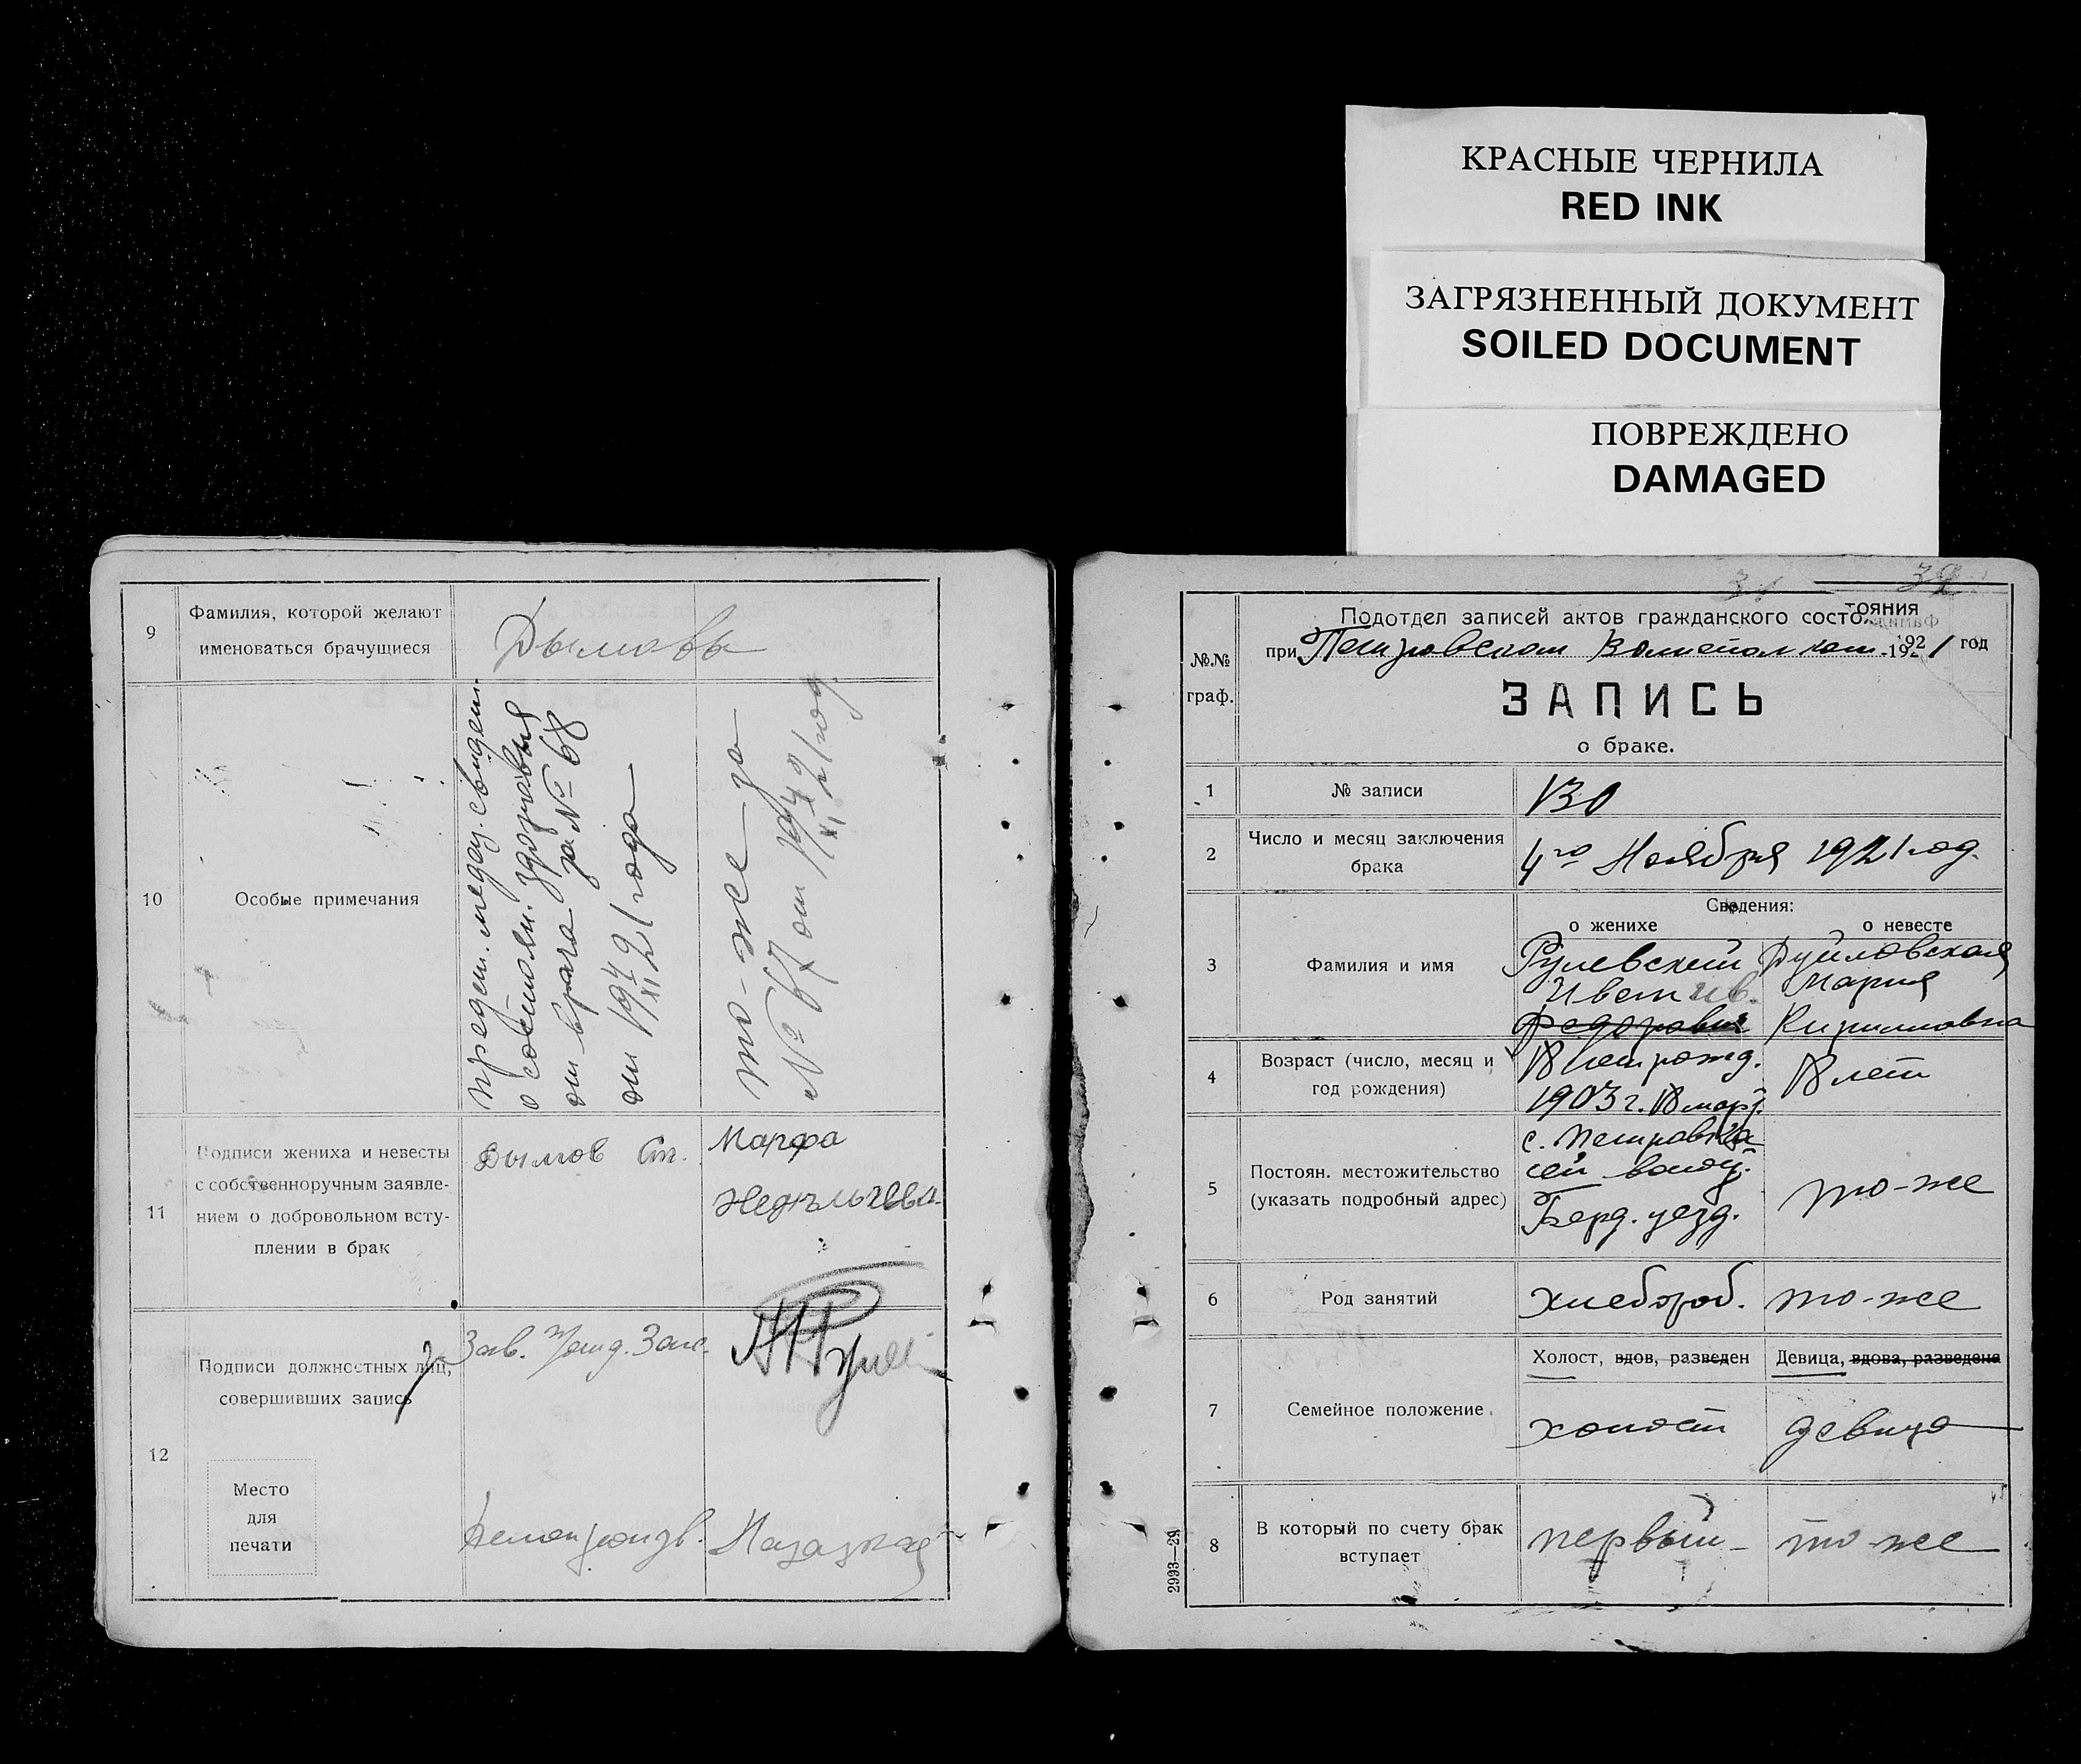 КРАСНЫЕ ЧЕРНИЛА
RED INK
ЗАГРЯЗНЕННЫЙ ДОКУМЕНТ
SOILED DOCUMENT
ПОВРЕЖДЕНО
DAMAGED
9
Фамилия, которой желают
именоваться брачущиеся
Дымовы
10
Особые примечания
предст. медиц. свидет.
о состоян. здоровья
от врача за № 68
от 4/XI 1921 года
то-же за
№ 67 от 4/XI 1921 год.
11
Подписи жениха и невесты
с собственноручным заявле-
нием о добровольном всту-
плении в брак
Дымов
Марфа
12
Подписи должностных лиц,
совершивших запись
Зав.
Место
для
печати
Делопроизв.
39
№№
граф.
Подотдел записей актов гражданского состояния
при Петровском 1921 год
ЗАПИСЬ
о браке.
1
№ записи
130
2
Число и месяц заключения
брака
4го Ноября 1921 год.
Сведения:
о женихе
о невесте
3
Фамилия и имя
Рулевский
Иван Ив.
Федорович
Мария
Кирилловна
4
Возраст (число, месяц и
год рождения)
18 лет рожд.
1903 г. 18 март.
18 лет
5
Постоян. местожительство
(указать подробный адрес)
с. Петровка
Берд. уезд.
то-же
6
Род занятий
хлебороб.
то-же
7
Семейное положение
Холост, вдов, разведен
Девица, вдова, разведена
холост
девица
8
В который по счету брак
вступает
первый
то-же
2993—29